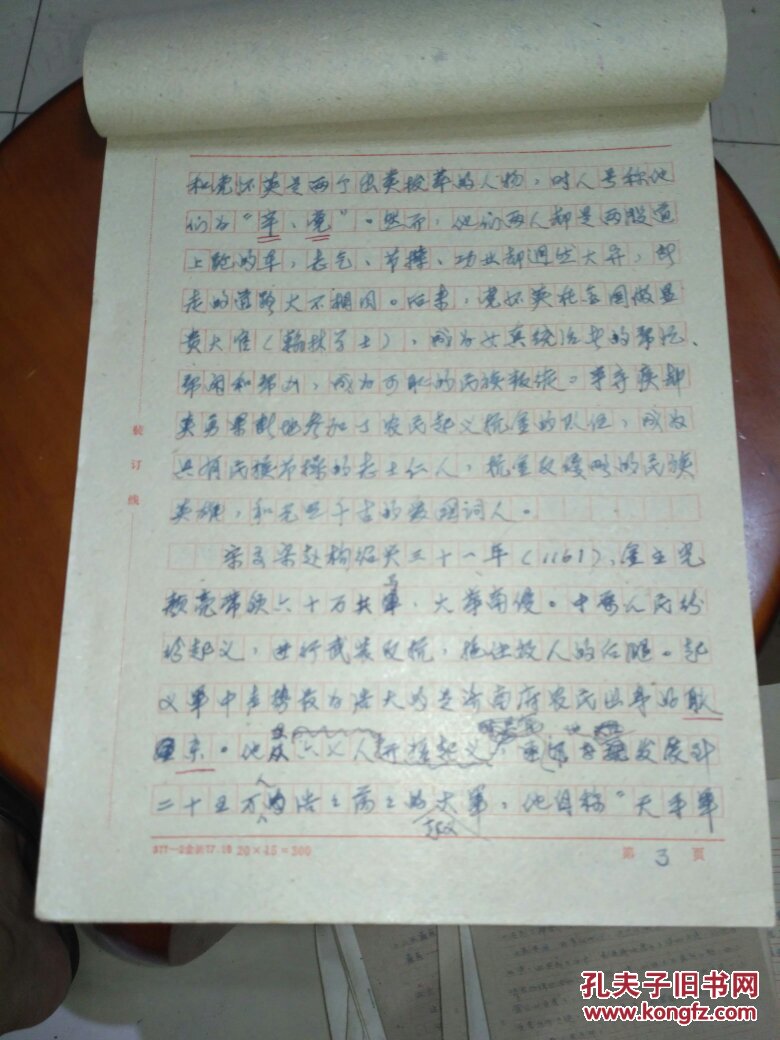 和党怀英是两个出类拔萃的人物，时人号称他
们为“辛、党”。然而，他们两人却是两股道
上跑的车，志气、节操、功业却迥然大异，所
走的道路大不相同。后来，党怀英在金国做显
贵大官（翰林学士），成为女真统治者的帮忙、
帮闲和帮凶，成为可耻的民族叛徒。辛弃疾却
英勇果断地参加了农民起义抗金的队伍，成为
具有民族节操的志士仁人，抗金反侵略的民族
英雄，和光照千古的爱国词人。
宋高宗赵构绍兴三十一年（1161），金主完
颜亮带领六十万大军，大举南侵。中原人民纷
纷起义，进行武装反抗，拖住敌人的后腿。起
义军中声势最为浩大的是济南府农民出身的耿
京。他从六七人开始起义 发展到
二十五万人的浩浩荡荡的大军，他自称“天平军
装订线
20×15=300
第 3 頁
孔夫子旧书网
www.kongfz.com